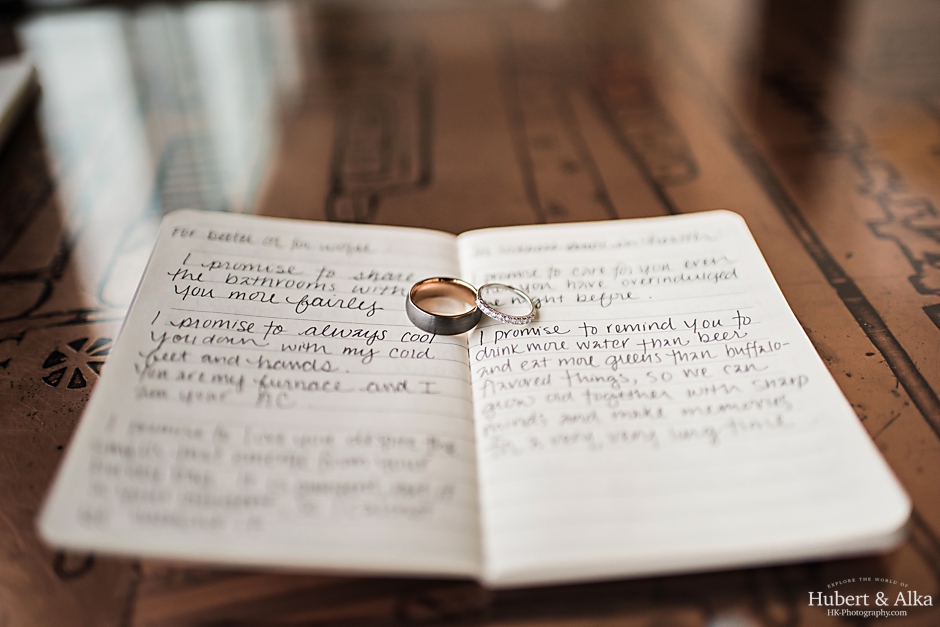 For better or for worse
I promise to share
the bathrooms with
you more fairley
I promise to always cool
you down with my cold
feet and hands.
You are my furnace and I
am your AC
I promise to love you despite the
from your
In sickness and in health
promise to care for you even
you have overindulged
the night before.
I promise to remind you to
drink more water than beer
and eat more greens than buffalo-
flavored things, so we can
grow old together with sharp
minds and make memories
for a very, very long time
EXPLORE THE WORLD OF
Hubert & Alka
HK-Photography.com